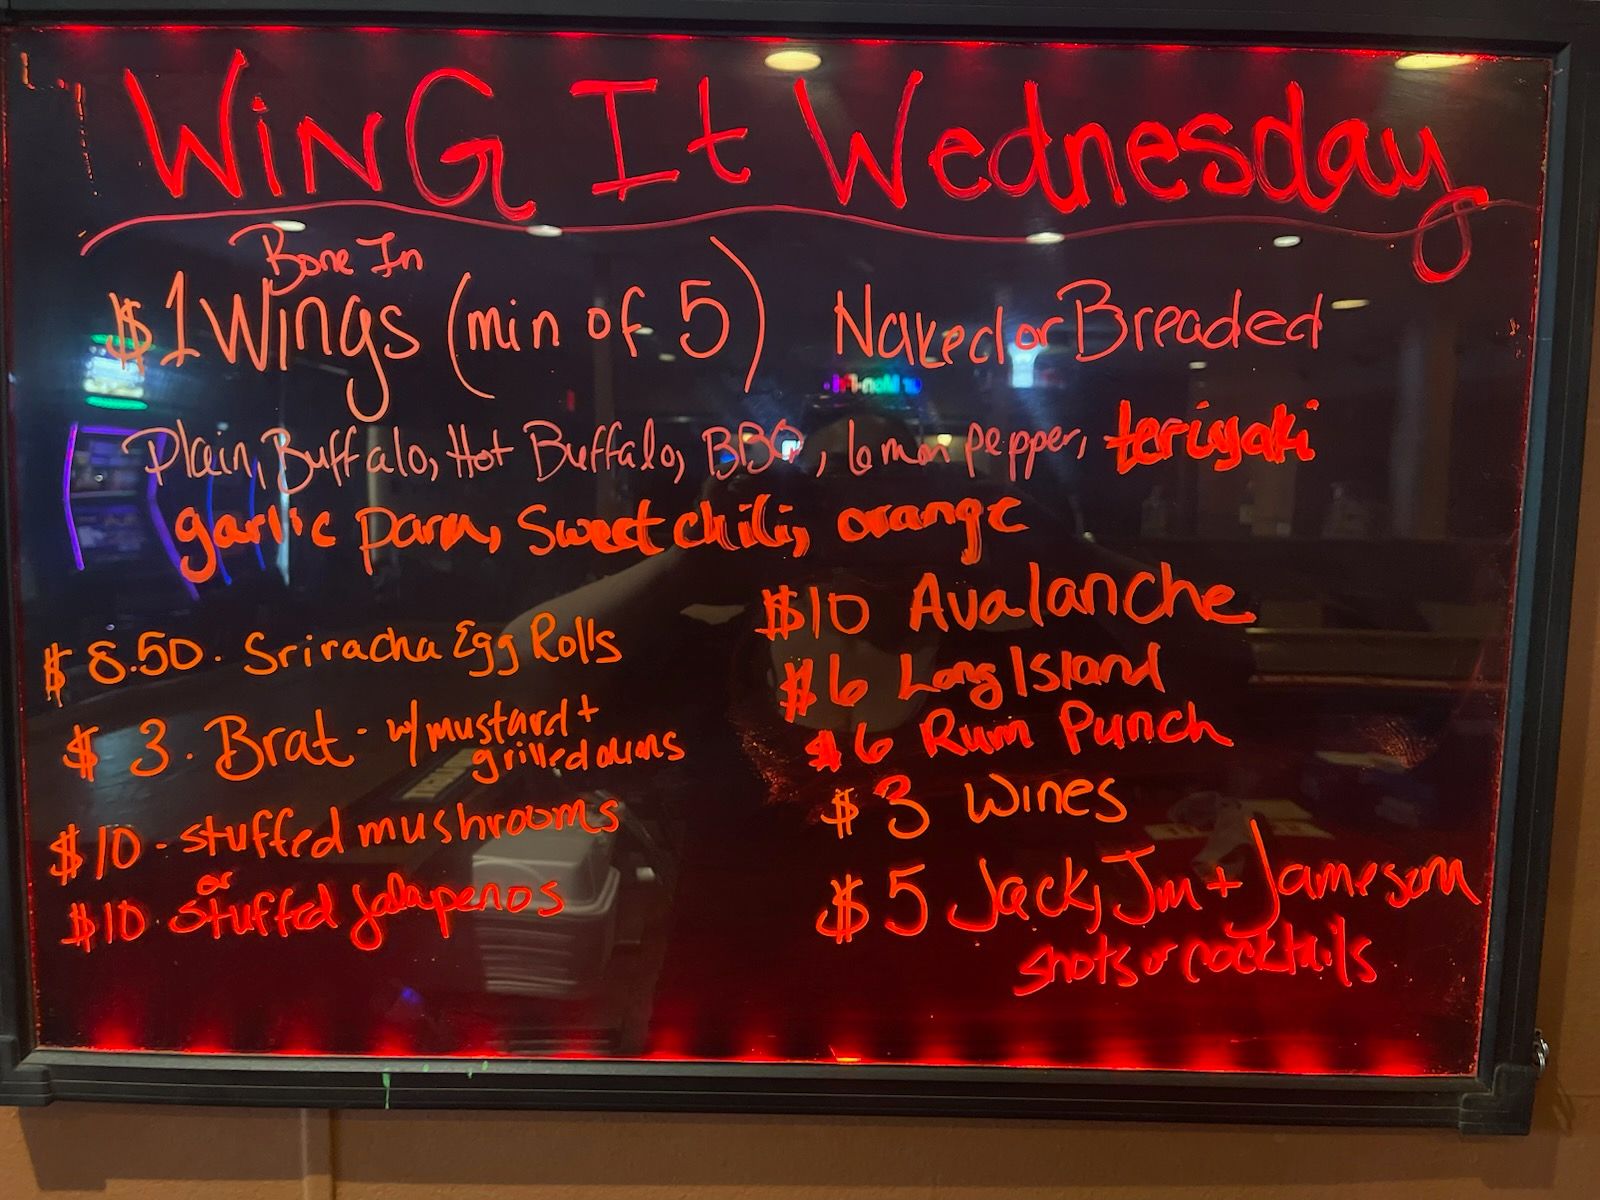 WiNG It Wednesday
Bone In
$1 Wings (min of 5) Naked or Breaded
Plain, Buffalo, Hot Buffalo, BBQ, lemon pepper, teriyaki
garlic parm, sweet chili, orange
$8.50 · Sriracha Egg Rolls
$3 · Brat - w/ mustard +
grilled onions
$10 - stuffed mushrooms
or
$10 · stuffed jalapenos
$10 Avalanche
$6 Long Island
$6 Rum Punch
$3 Wines
$5 Jack, Jim + Jameson
shots or cocktails